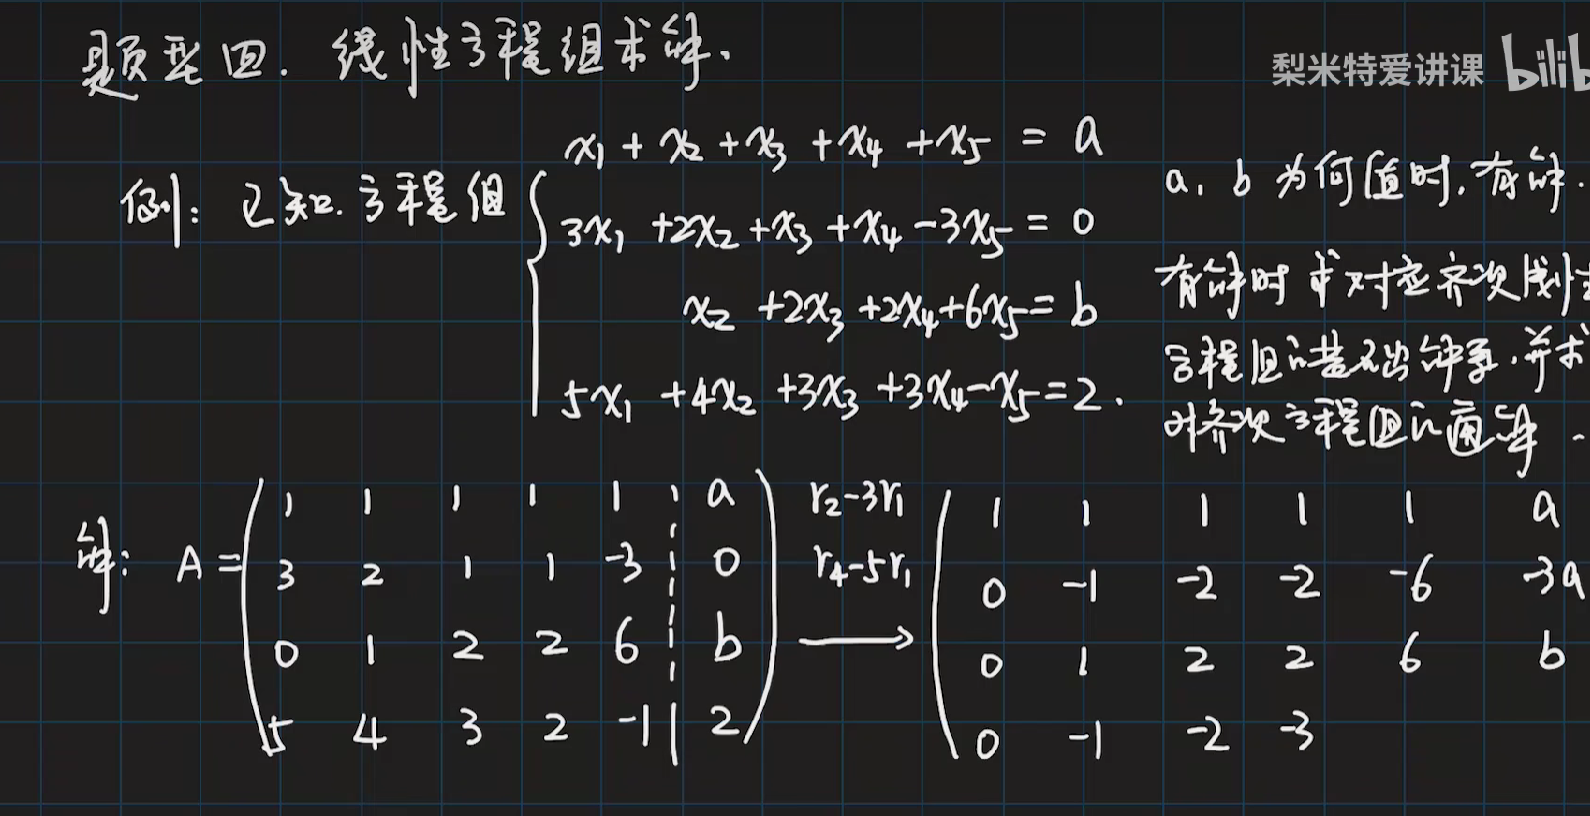 题型四. 线性方程组求解.
梨米特爱讲课 bilib
例: 已知.方程组
x₁ + x₂ + x₃ + x₄ + x₅ = a
3x₁ + 2x₂ + x₃ + x₄ - 3x₅ = 0
x₂ + 2x₃ + 2x₄ + 6x₅ = b
5x₁ + 4x₂ + 3x₃ + 3x₄ - x₅ = 2.
a, b 为何值时, 有解.
有解时 求对应齐次线性
方程组的基础解系.并求
对齐次方程组的通解.
解: A =
1 1 1 1 1 a
3 2 1 1 -3 0
0 1 2 2 6 b
5 4 3 2 -1 2
r₂-3r₁
r₄-5r₁
1 1 1 1 1 a
0 -1 -2 -2 -6 -3a
0 1 2 2 6 b
0 -1 -2 -3